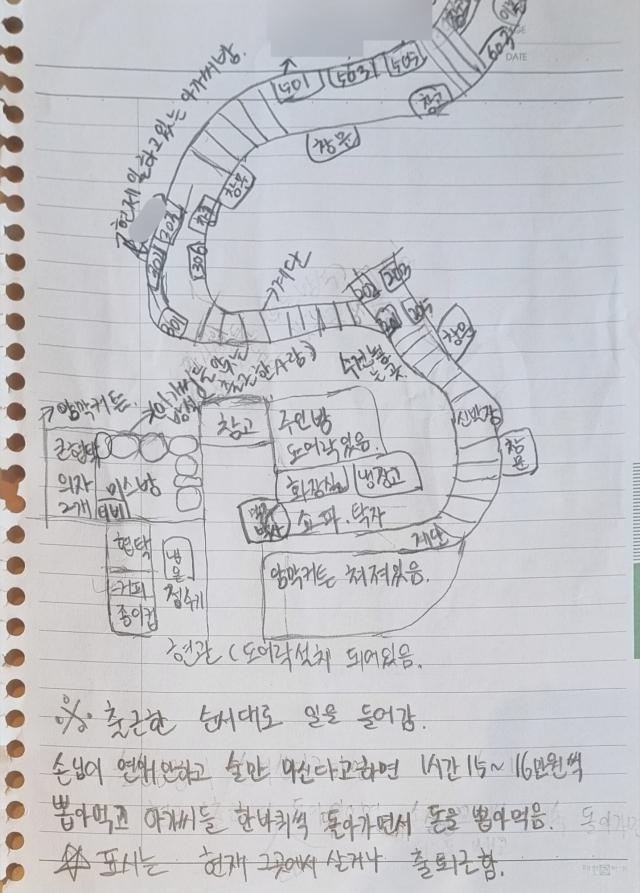 창고
603
DATE
501
503
505
창고
창문
현재 일하고 있는 아가씨방.
창문
303
302
306
301
계단
202
203
201
205
창문
수건 놓
는 곳.
신발장
창문
암막커튼
창고
주인방
도어락 있음.
화장실
냉장고
쇼파. 탁자
계단
의자
2개
미스방
티비
현탁
커피
종이컵
냉
온
정수기
암막커튼 쳐져있음.
현관 (도어락 설치 되어있음.
※ 출근한 순서대로 일을 들어감.
손님이 연애 안하고 술만 마신다고하면 1시간 15~16만원씩
뽑아먹고 아가씨들 한바퀴씩 돌아가면서 돈을 뽑아먹음.
☆ 표시는 현재 그곳에서 살거나 출퇴근함.